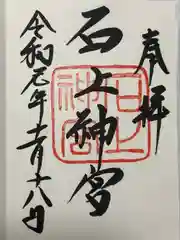 奉拝
石上神宮
令和元年十一月十八日